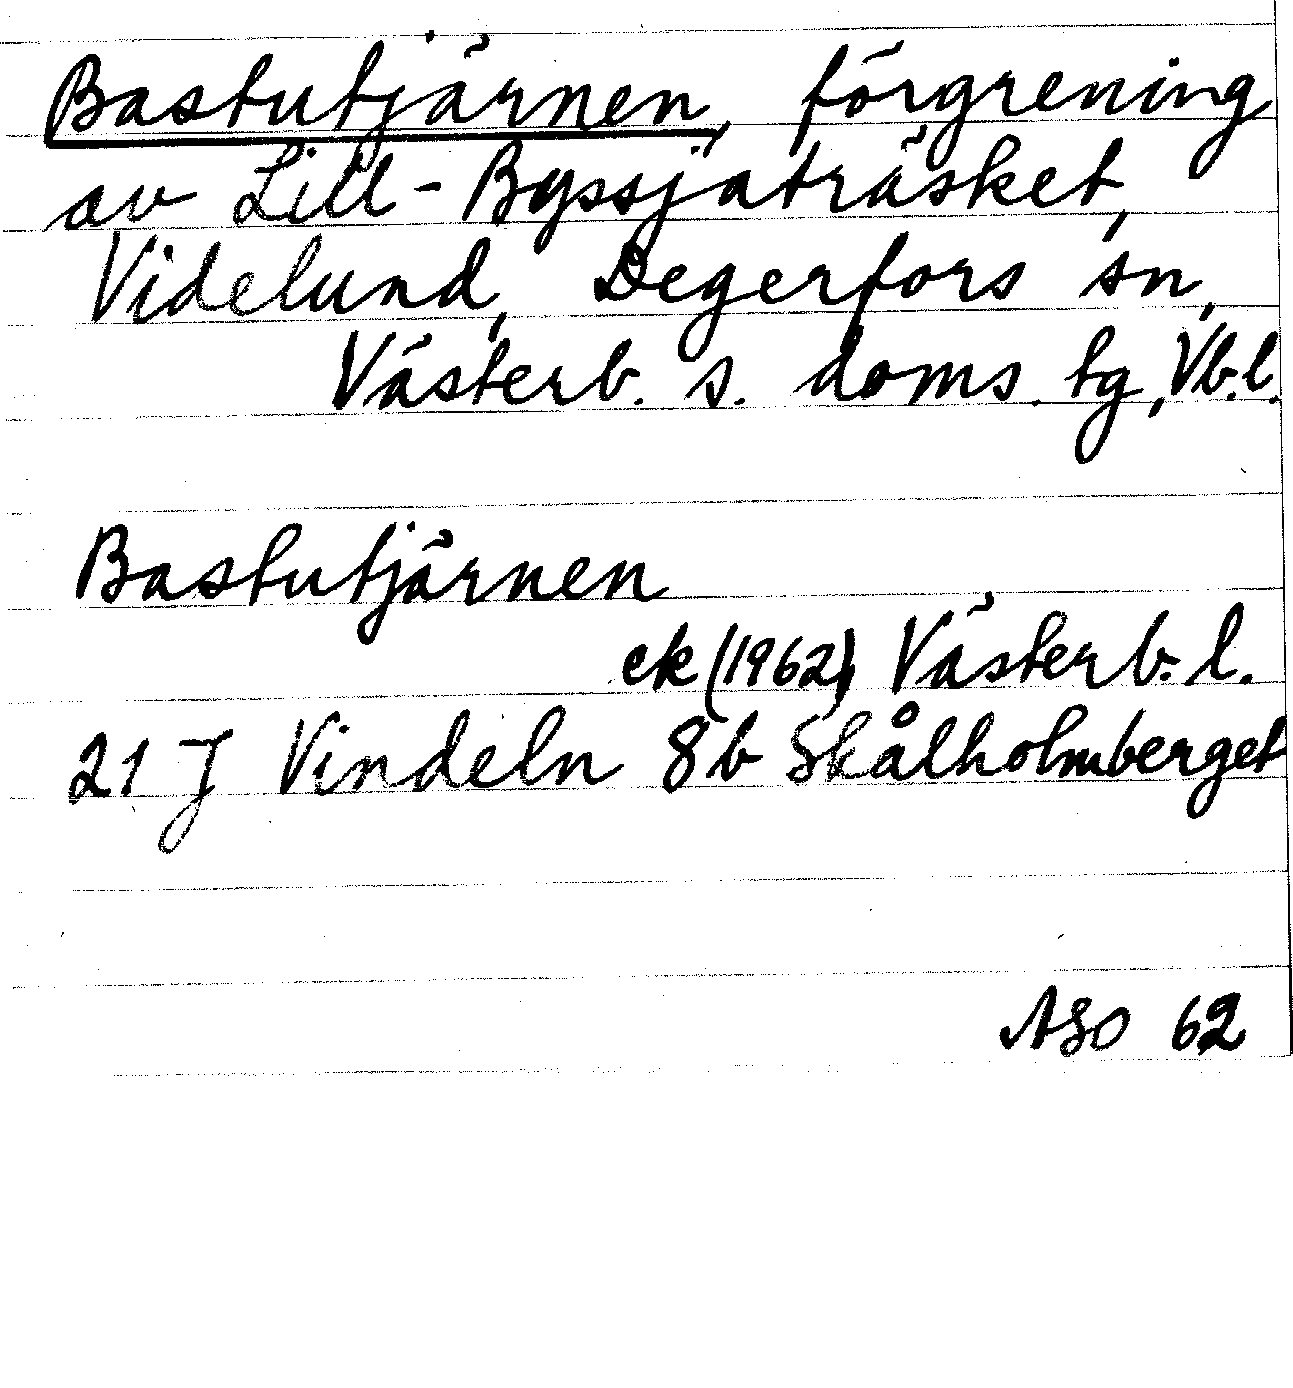 Bastutjärnen, förgrening
av Lill-Byssjaträsket,
Videlund, Degerfors sn,
Västerb. s. doms. tg, Vb.l.
Bastutjärnen
ek (1962) Västerb. l.
21 J Vindeln 8b Skålholmberget
ASO 62